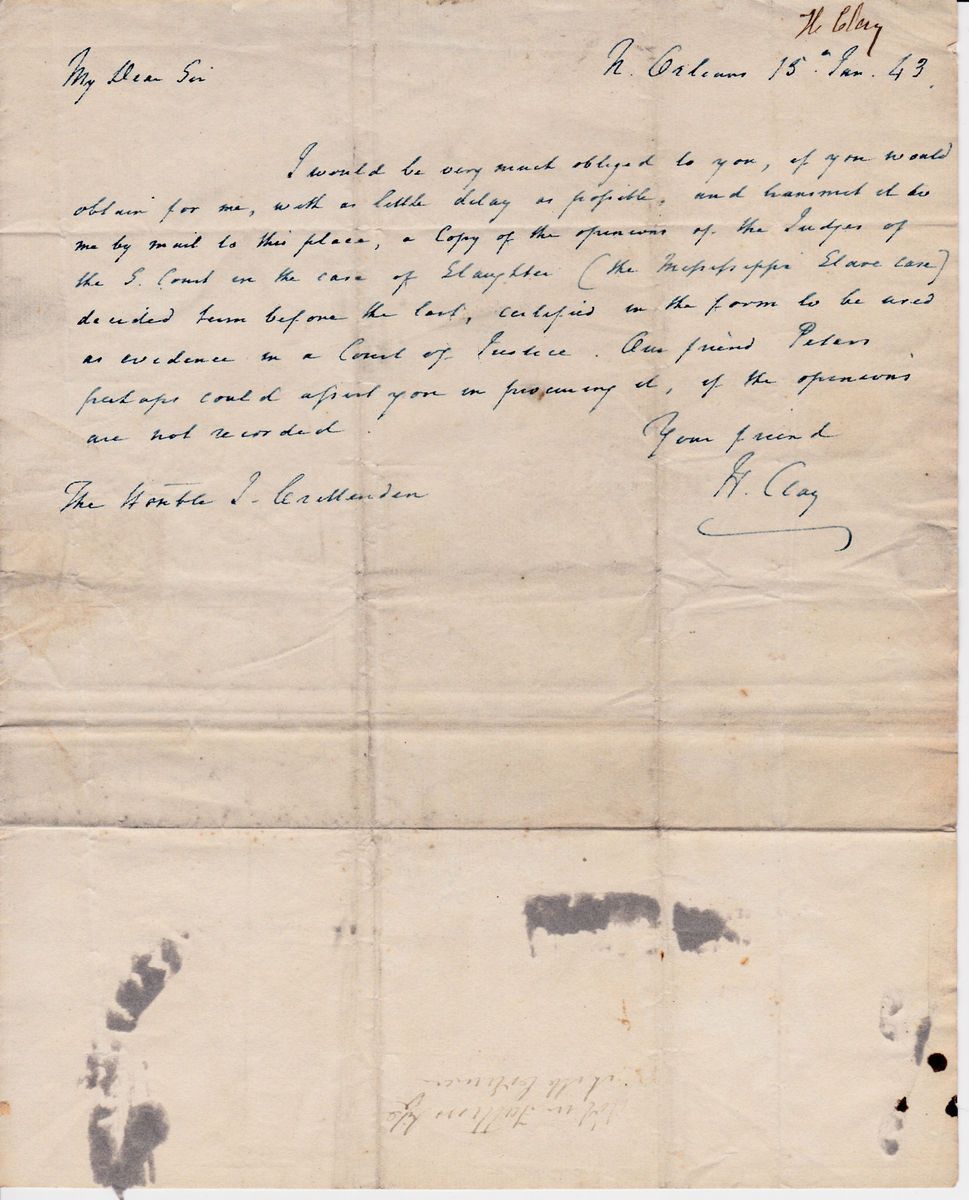 H. Clay
My Dear Sir
N. Orleans 15h Jan. 43.
I would be very much obliged to you, if you would
obtain for me, with as little delay as possible, and transmit it to
me by mail to this place, a Copy of the opinions of the Judges of
the S. Court in the case of Slaughter (the Mississippi Slave case)
decided term before the last, certified in the form to be used
as evidence in a Court of Justice. Our friend Peters
perhaps could assist you in procuring it, if the opinions
are not recorded.
Your friend
H. Clay
The Honble J. Crittenden